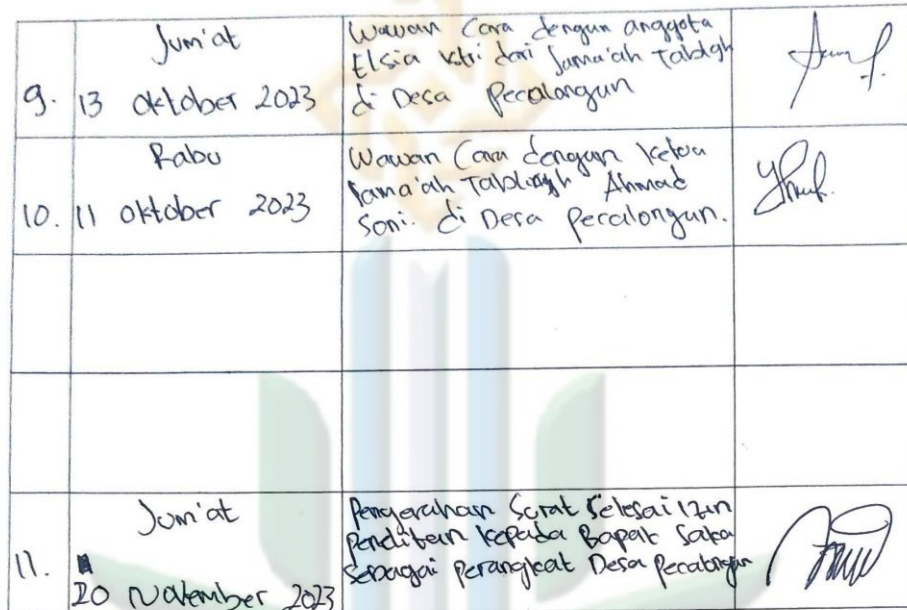 9.
Jum'at
13 Oktober 2023
Wawan Cara dengan anggota
Elsia istri dari Jama'ah Tabligh
di Desa pecalongan
10.
Rabu
11 Oktober 2023
Wawan Cara dengan ketua
Jama'ah Tabligh Ahmad
Soni. di Desa pecalongan.
11.
Jum'at
20 November 2023
Pengerahan Surat Selesai izin
Penelitian kepada Bapak Saka
Sebagai perangkat Desa pecalongan